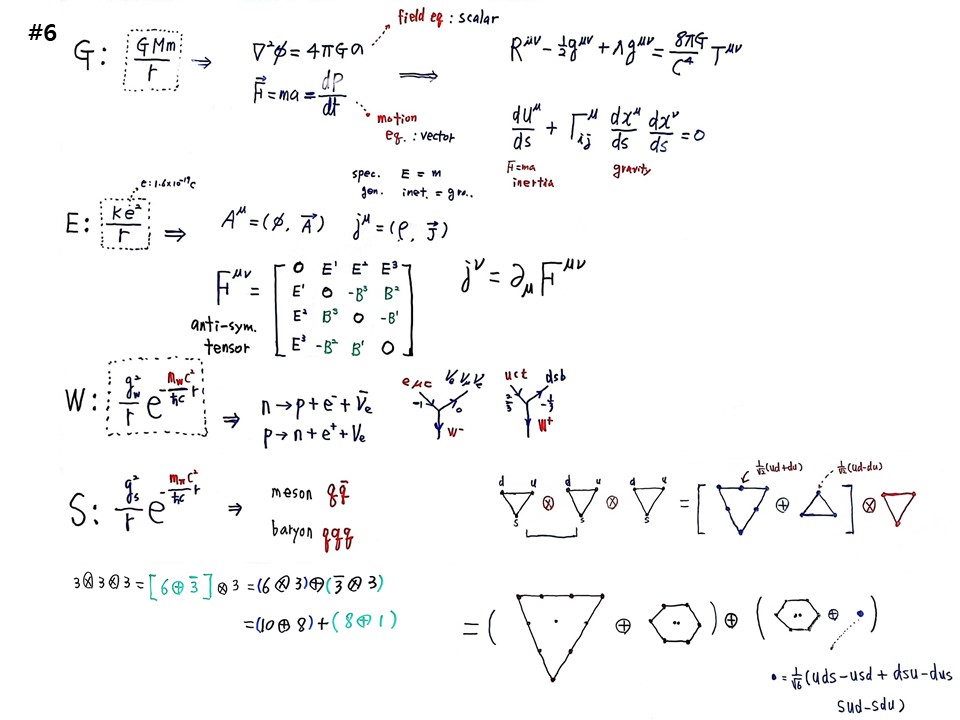 #6
G: GMm/r ⇒ ∇²φ = 4πGρ field eq : scalar
F⃗ = ma = dp/dt
motion eq. : vector
⟹ R^μν - ½g^μν + Λg^μν = 8πG/C⁴ T^μν
du^μ/ds + Γ^μ_ij dx^μ/ds dx^ν/ds = 0
F=ma inertia
gravity
spec. E = m
gen. inet. = gra..
e: 1.6×10⁻¹⁹C
E: ke²/r ⇒ A^μ = (φ, A⃗) j^μ = (ρ, J⃗)
F^μν = [
0 E¹ E² E³
E¹ 0 -B³ B²
E² B³ 0 -B¹
E³ -B² B¹ 0
]
anti-sym. tensor
j^ν = ∂_μ F^μν
W: g_w²/r e^(-m_w c²/ħc r) ⇒ n → p + e⁻ + ν̄_e
p → n + e⁺ + ν_e
e μ τ ν_e ν_μ ν_τ
-1 0
W⁻
u c t d s b
2/3 -1/3
W⁺
S: g_s²/r e^(-m_π c²/ħc r) ⇒ meson qq̄
baryon qqq
d u s ⊗ d u s ⊗ d u s = [ ⊕ ] ⊗
1/√2(ud+du) 1/√2(ud-du)
3⊗3⊗3 = [6⊕3̄]⊗3 = (6⊗3)⊕(3̄⊗3)
= (10⊕8)+(8⊕1)
= ( ⊕ ) ⊕ ( ⊕ • )
• = 1/√6 (uds-usd + dsu-dus
sud-sdu)